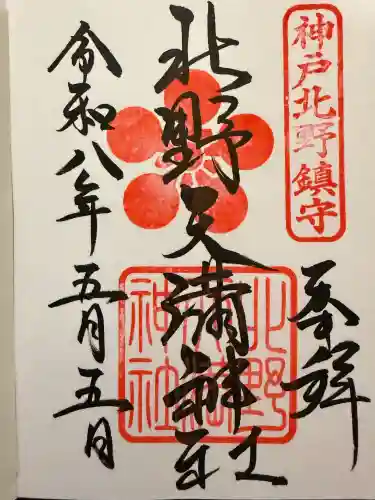 神戸北野鎮守
奉拝
北野天満神社
北野天満神社
令和八年五月五日